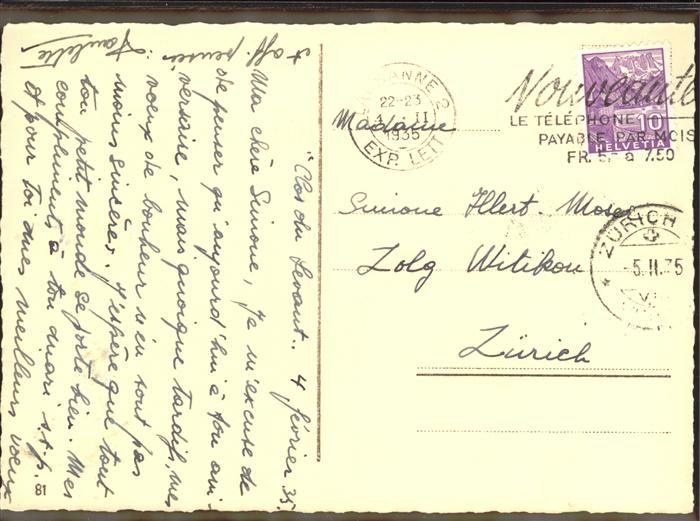 "Clos du Levant". 4 février 35.
Ma chère Simone, Je m'excuse de
ne penser qu'aujourd'hui à ton ani-
versaire, mais quoique tardifs, mes
voeux de bonheur n'en sont pas
moins sincères. J'espère que tout
ton petit monde se porte bien. Mes
compliments à ton mari s.t.p.
et pour toi mes meilleurs voeux
et aff. pensées.
Paulette
81
LAUSANNE 2
22-23
4. II
1935
EXP. LETT
Nouveauté
LE TÉLÉPHONE
PAYABLE PAR MOIS
FR. 5.- à 7.50
10
HELVETIA
Madame
Simone Illert-Moser
Zolg Witikon
Zürich
ZÜRICH
-5.II.35